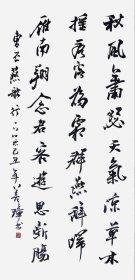 秋風蕭瑟天氣涼草木
搖落露為霜群燕辭歸
雁南翔念君客遊思斷腸
曹丕燕歌行